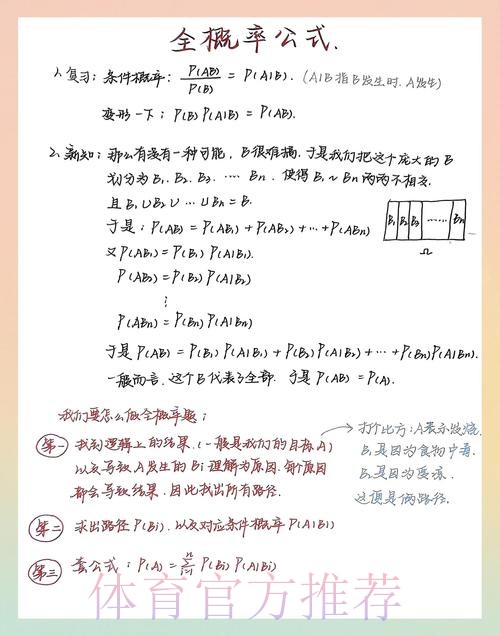 全概率公式.
1.复习:条件概率: P(AB)/P(B) = P(A|B). (A|B指B发生时.A发生)
变形一下: P(B)P(A|B) = P(AB).
2.新知:那么有没有一种可能,B很难搞.于是我们把这个庞大的B
划分为B1.B2.B3.⋯⋯Bn.使得B1~Bn两两不相交.
且B1∪B2∪⋯∪Bn=B.
于是: P(AB) = P(AB1)+P(AB2)+⋯+P(ABn)
B1 B2 B3 ⋯⋯ Bn
Ω
又P(AB1)=P(B1)P(A|B1).
P(AB2)=P(B2)P(A|B2)
⋮
P(ABn)=P(Bn)P(A|Bn)
于是P(AB) = P(B1)P(A|B1)+P(B2)P(A|B2)+⋯+P(Bn)P(A|Bn).
一般而言.这个B代表了全部.于是P(AB)=P(A).
我们要怎么做全概率题:
第一 找到逻辑上的结果.(一般是我们的目标A)
以及导致A发生的Bi理解为原因.每个原因
都会导致结果.因此找出所有路径.
→打个比方:A表示发烧.
B1是因为食物中毒.
B2是因为受冻.
这便是俩路径.
第二 求出路径P(Bi).以及对应条件概率P(A|Bi)
第三 套公式: P(A)=∑ⁿᵢ₌₁ P(Bi)P(A|Bi)
体育官方推荐